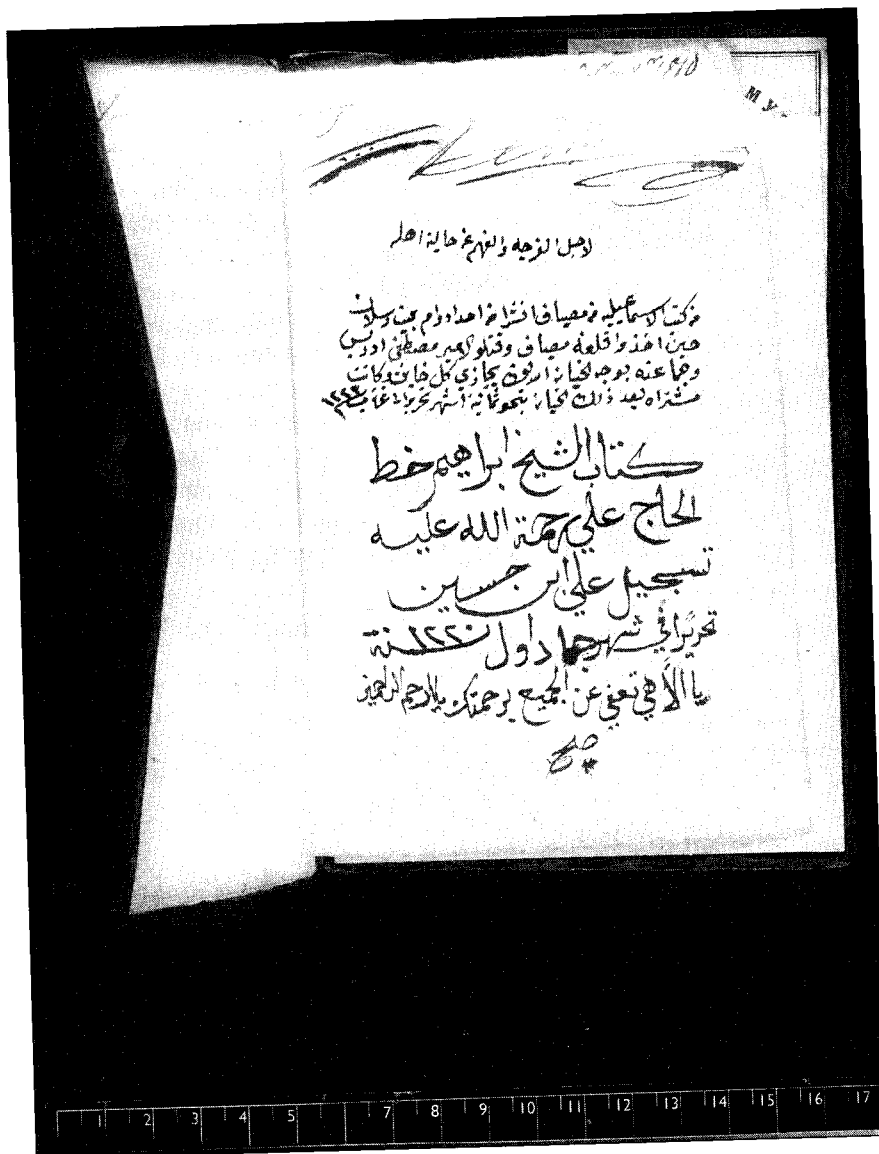 لاجل الفرجه والفهم عن حالة اهله
من كتب الاسماعيليه من مصياف انشرا من احد اوام بيت رسلان
حين اخذوا قلعة مصياف وقتلو الامير مصطفى ادريس
وجماعته بوجه الخيانه الله يجازي كل خاين وكانت
مشتراه بعد ذلك الخيانه بنحو ثمانية اشهر تحريرا في ١٢٢٣
كتاب الشيخ ابراهيم خط
الحاج علي رحمة الله عليه
تسجيل علي ابن حسين
تحريرًا في شهر جماد اول سنة ١٢٢٠
يا الاهي تعفي عن الجميع برحمتك يا ارحم الراحمين
صح
M У
1 2 3 4 5 7 8 9 10 11 12 13 14 15 16 17